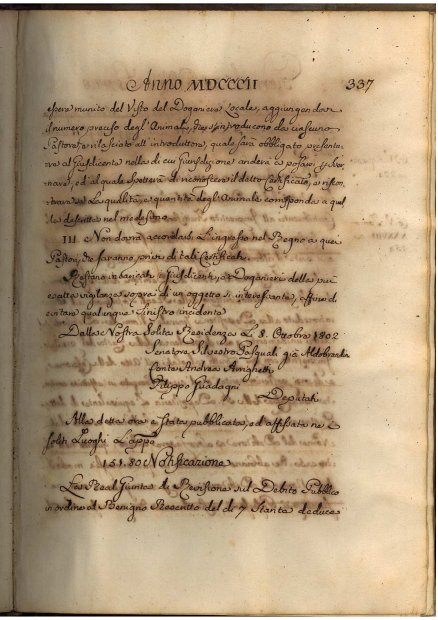 Anno MDCCCII 337
essere munito del Visto del Doganiere Locale, aggiungendo
il numero preciso degl'Animali, che s'introducono da ciascuno
Pastore, e rilasciato all'introduttore, quale sarà obbligato presenta
re al Giusdicente nella di cui Giurisdizione anderà a posarsi
nare, ed al quale spetterà di riconoscere il detto Certificato, e riscon
trare se La qualità, e quantità degl'Animali corrisponda a quel
la descritta nel medesimo
III. Non dovrà accordarsi L'ingresso nel Regno a quei
Pastori, che saranno privi di tali Certificati.
Restano incaricati i Giusdicenti, e Doganieri della più
esatta vigilanza sopra di un oggetto sì interessante, affine di
evitare qualunque sinistro incidente
Dalla Nostra Solita Residenza Li 8. Ottobre 1802
Senatore Silvestro già Aldobrandini
Conte Andrea Arrighetti
Filippo Guadagni
Deputati
Alla detta ora è stata pubblicata, ed affissata ne
soliti Luoghi
151.80 Notificazione
La Real Giunta di Revisione sul Debito Pubblico
in ordine al Benigno Rescritto del dì 7 stante deduce